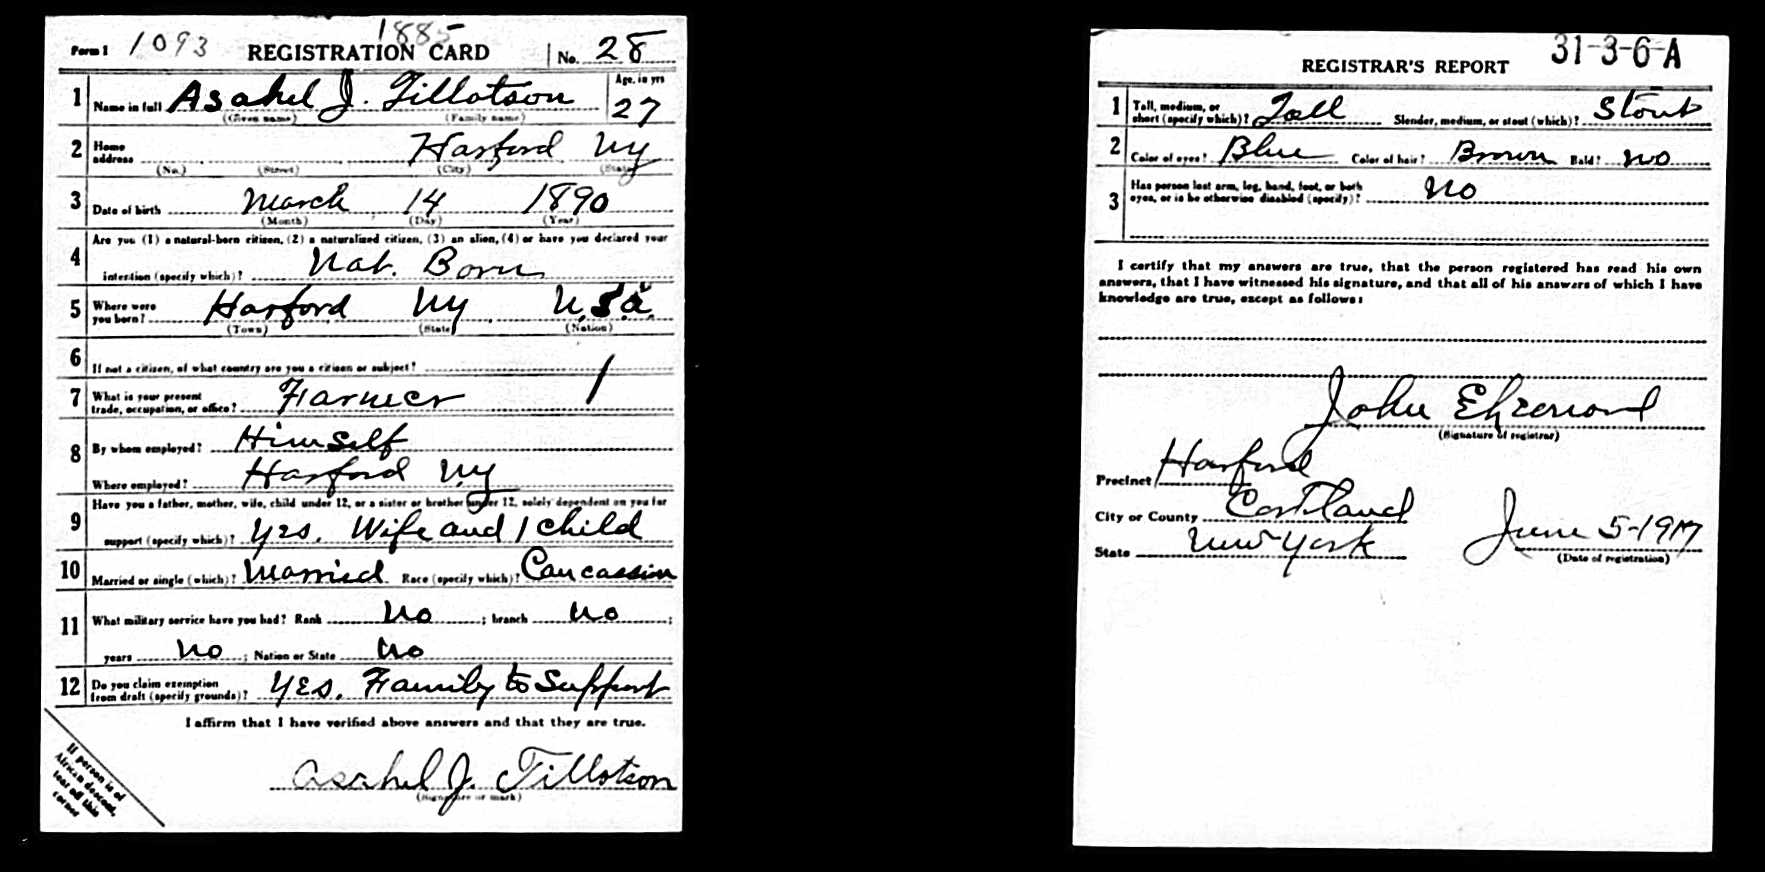 1885
Form 1 1093 REGISTRATION CARD No. 28
1 Name in full Asahel J. Tillotson Age, in yrs 27
(Given name) (Family name)
2 Home address Harford Ny
(No.) (Street) (City) (State)
3 Date of birth March 14 1890
(Month) (Day) (Year)
4 Are you (1) a natural-born citizen, (2) a naturalized citizen, (3) an alien, (4) or have you declared your
intention (specify which)? Nat. Born
5 Where were you born? Harford Ny U.S.a.
(Town) (State) (Nation)
6 If not a citizen, of what country are you a citizen or subject?
7 What is your present trade, occupation, or office? Farmer
8 By whom employed? Himself
Where employed? Harford Ny
9 Have you a father, mother, wife, child under 12, or a sister or brother under 12, solely dependent on you for
support (specify which)? Yes. Wife and 1 child
10 Married or single (which)? Married Race (specify which)? Caucassin
11 What military service have you had? Rank No ; branch No ;
years No ; Nation or State No
12 Do you claim exemption from draft (specify grounds)? Yes. Family to Support
I affirm that I have verified above answers and that they are true.
Asahel J. Tillotson
(Signature or mark)
If person is of
African descent,
tear off this
corner
31-3-6-A
REGISTRAR'S REPORT
1 Tall, medium, or short (specify which)? Tall Slender, medium, or stout (which)? Stout
2 Color of eyes? Blue Color of hair? Brown Bald? No
3 Has person lost arm, leg, hand, foot, or both
eyes, or is he otherwise disabled (specify)? No
I certify that my answers are true, that the person registered has read his own
answers, that I have witnessed his signature, and that all of his answers of which I have
knowledge are true, except as follows:
John
(Signature of registrar)
Precinct Harford
City or County Cortland
State New York June 5-1917
(Date of registration)